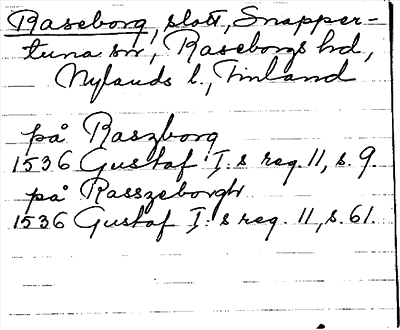 Raseborg, slott, Snapper-
tuna sn, Raseborgs hd,
Nylands l., Finland
på Raszborg
1536 Gustaf I:s reg. 11, s. 9.
på Rasszeborgh
1536 Gustaf I:s reg. 11, s. 61.